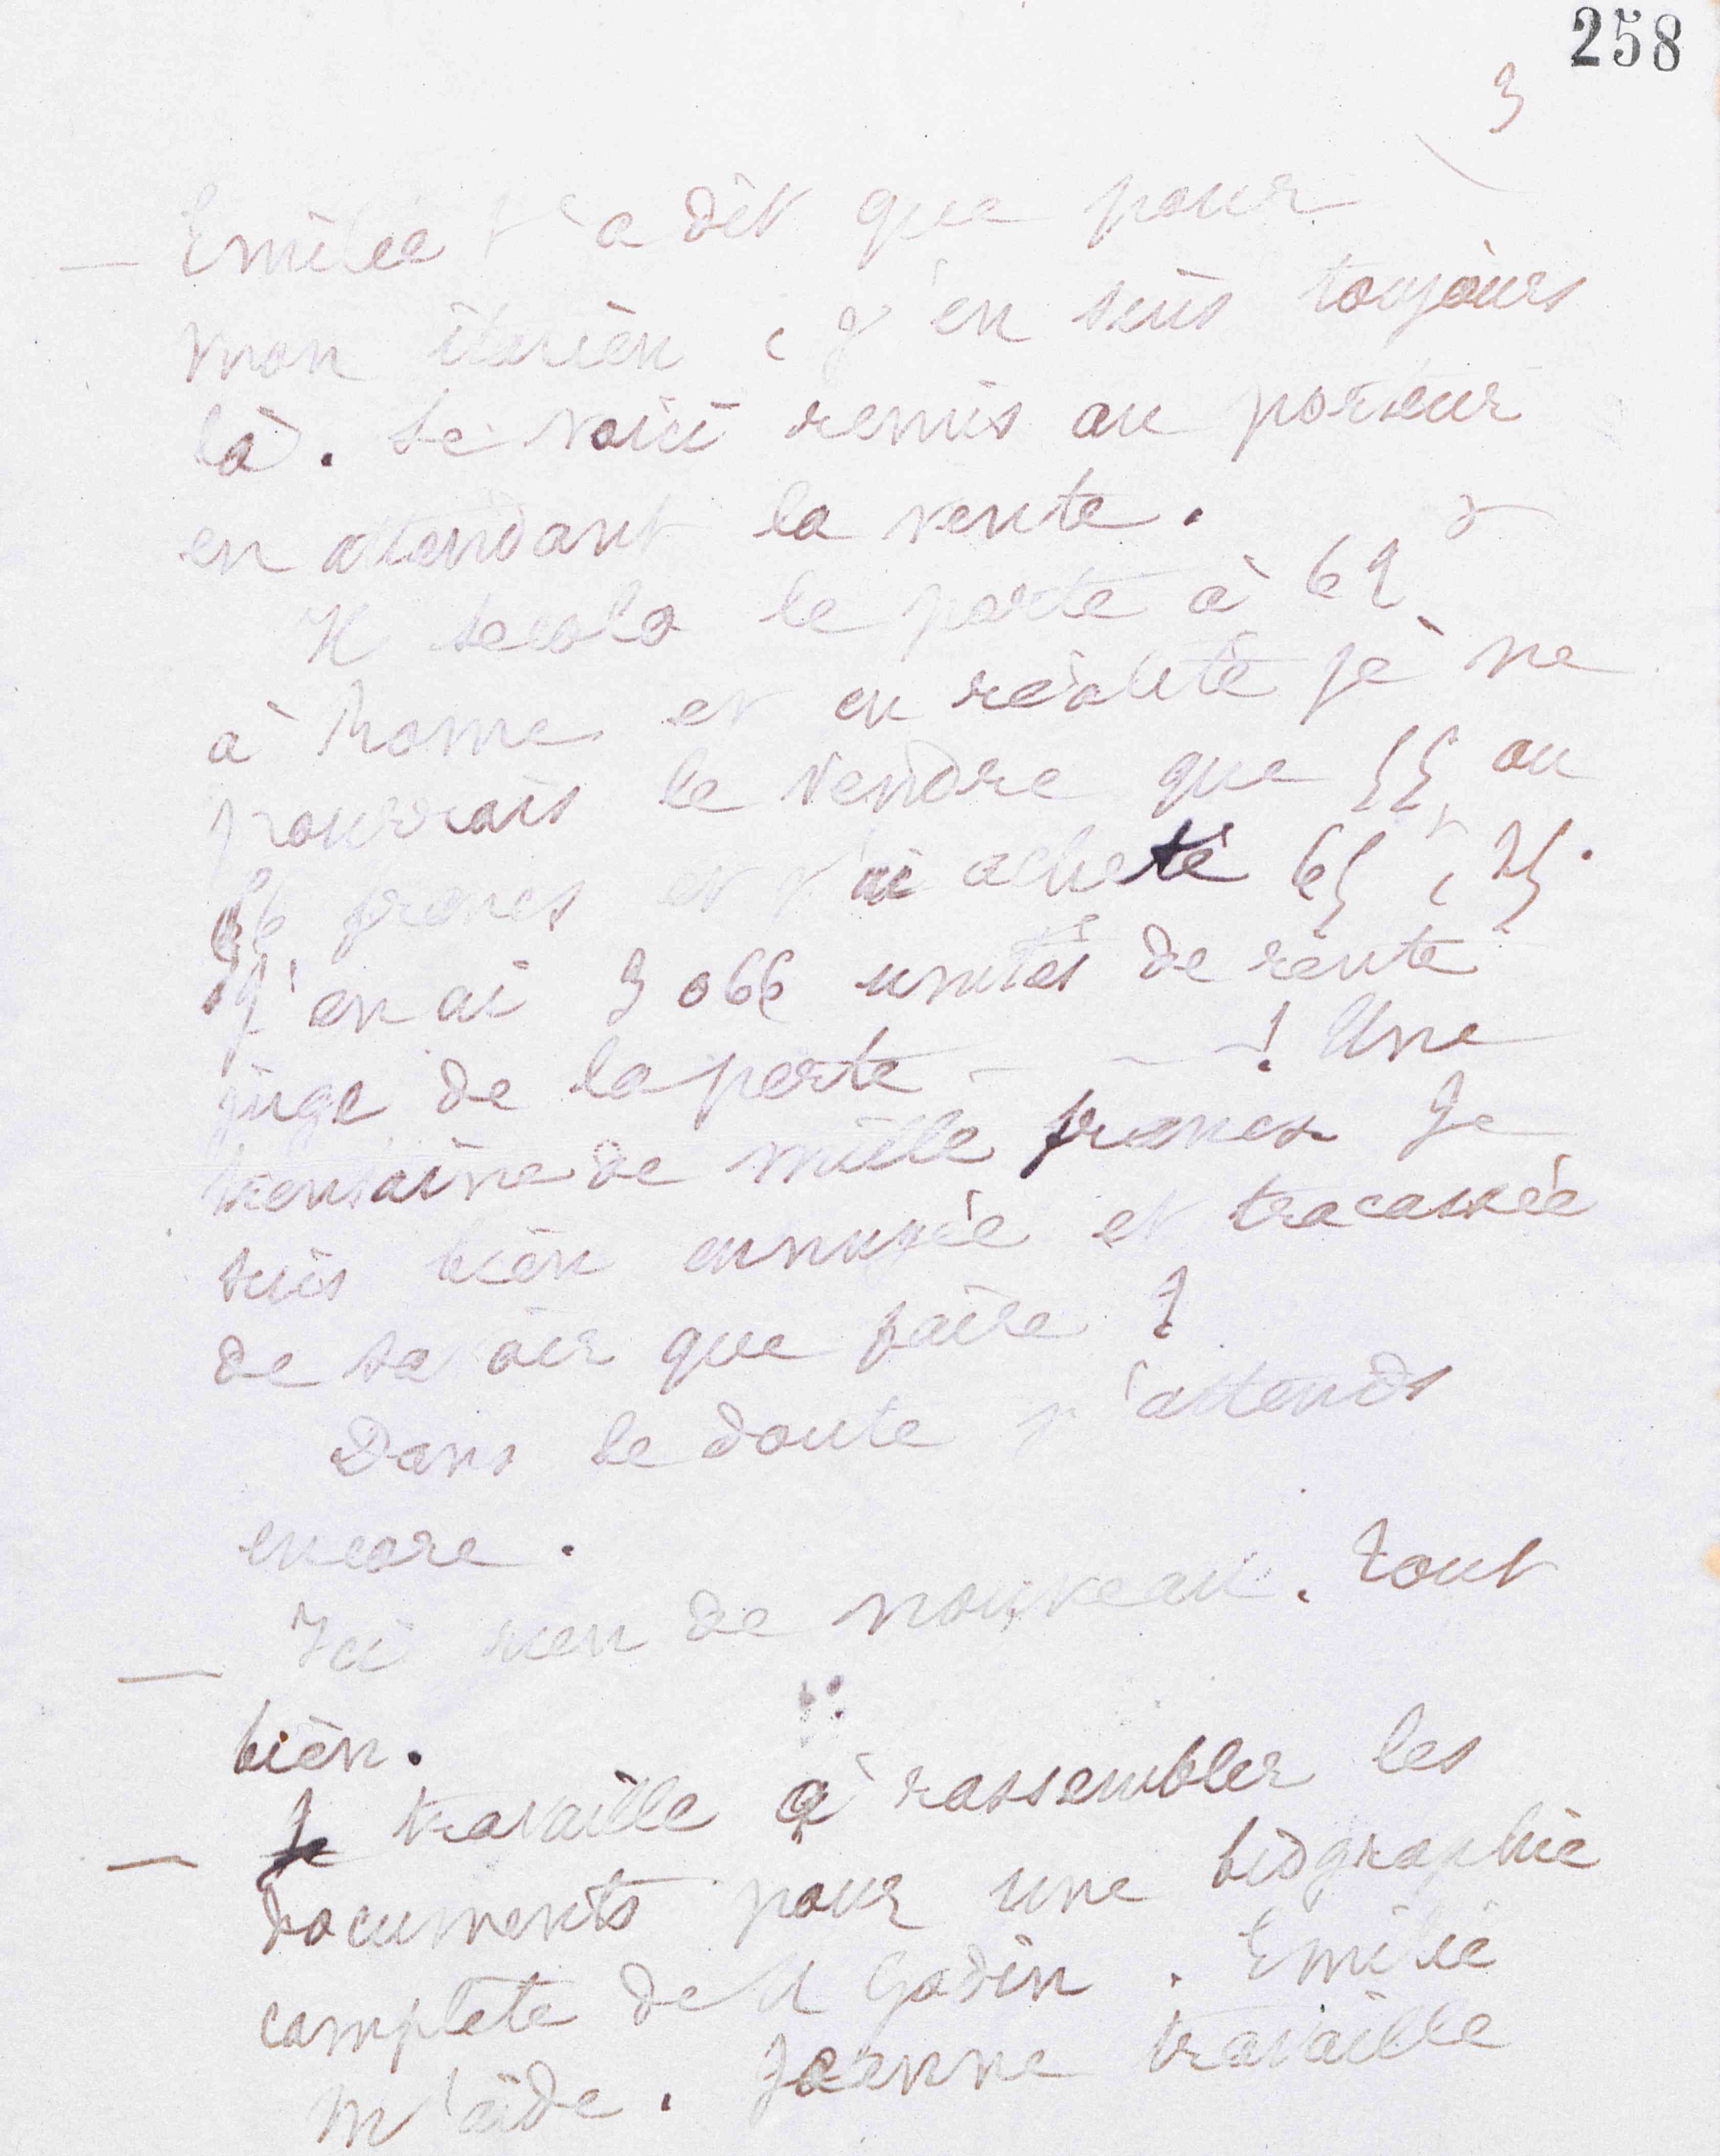 258
3
— Emilie t'a dit que pour
mon italien, j'en suis toujours
là. Le voici remis au porteur
en attendant la vente.
Il secolo le porte à 62
à Rome et en réalité je ne
pourrais le vendre que 55 ou
56 francs et j'ai acheté 65f, 25.
J'en ai 3066 unités de rente
juge de la perte - - -! Une
trentaine de mille francs Je
suis bien ennuyée et tracassée
de savoir que faire ?
Dans le doute j'attends
encore.
— Ici rien de nouveau. Tout
bien.
— Je travaille à rassembler les
documents pour une biographie
complète de M Godin. Emilie
m'aide. Jeanne travaille